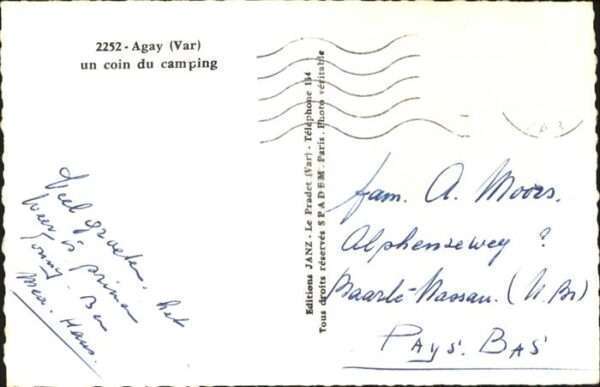 2252 - Agay (Var)
un coin du camping
Veel groeten. het
weer is prima
Conny. Ben
Mea. Hans.
Editions JANZ - Le Pradet (Var) - Téléphone 154
Tous droits réservés SPADEM - Paris. Photo véritable
fam. A. Moors.
Alphenseweg ?
Baarle-Nassau. (N. Br)
PAYS. BAS